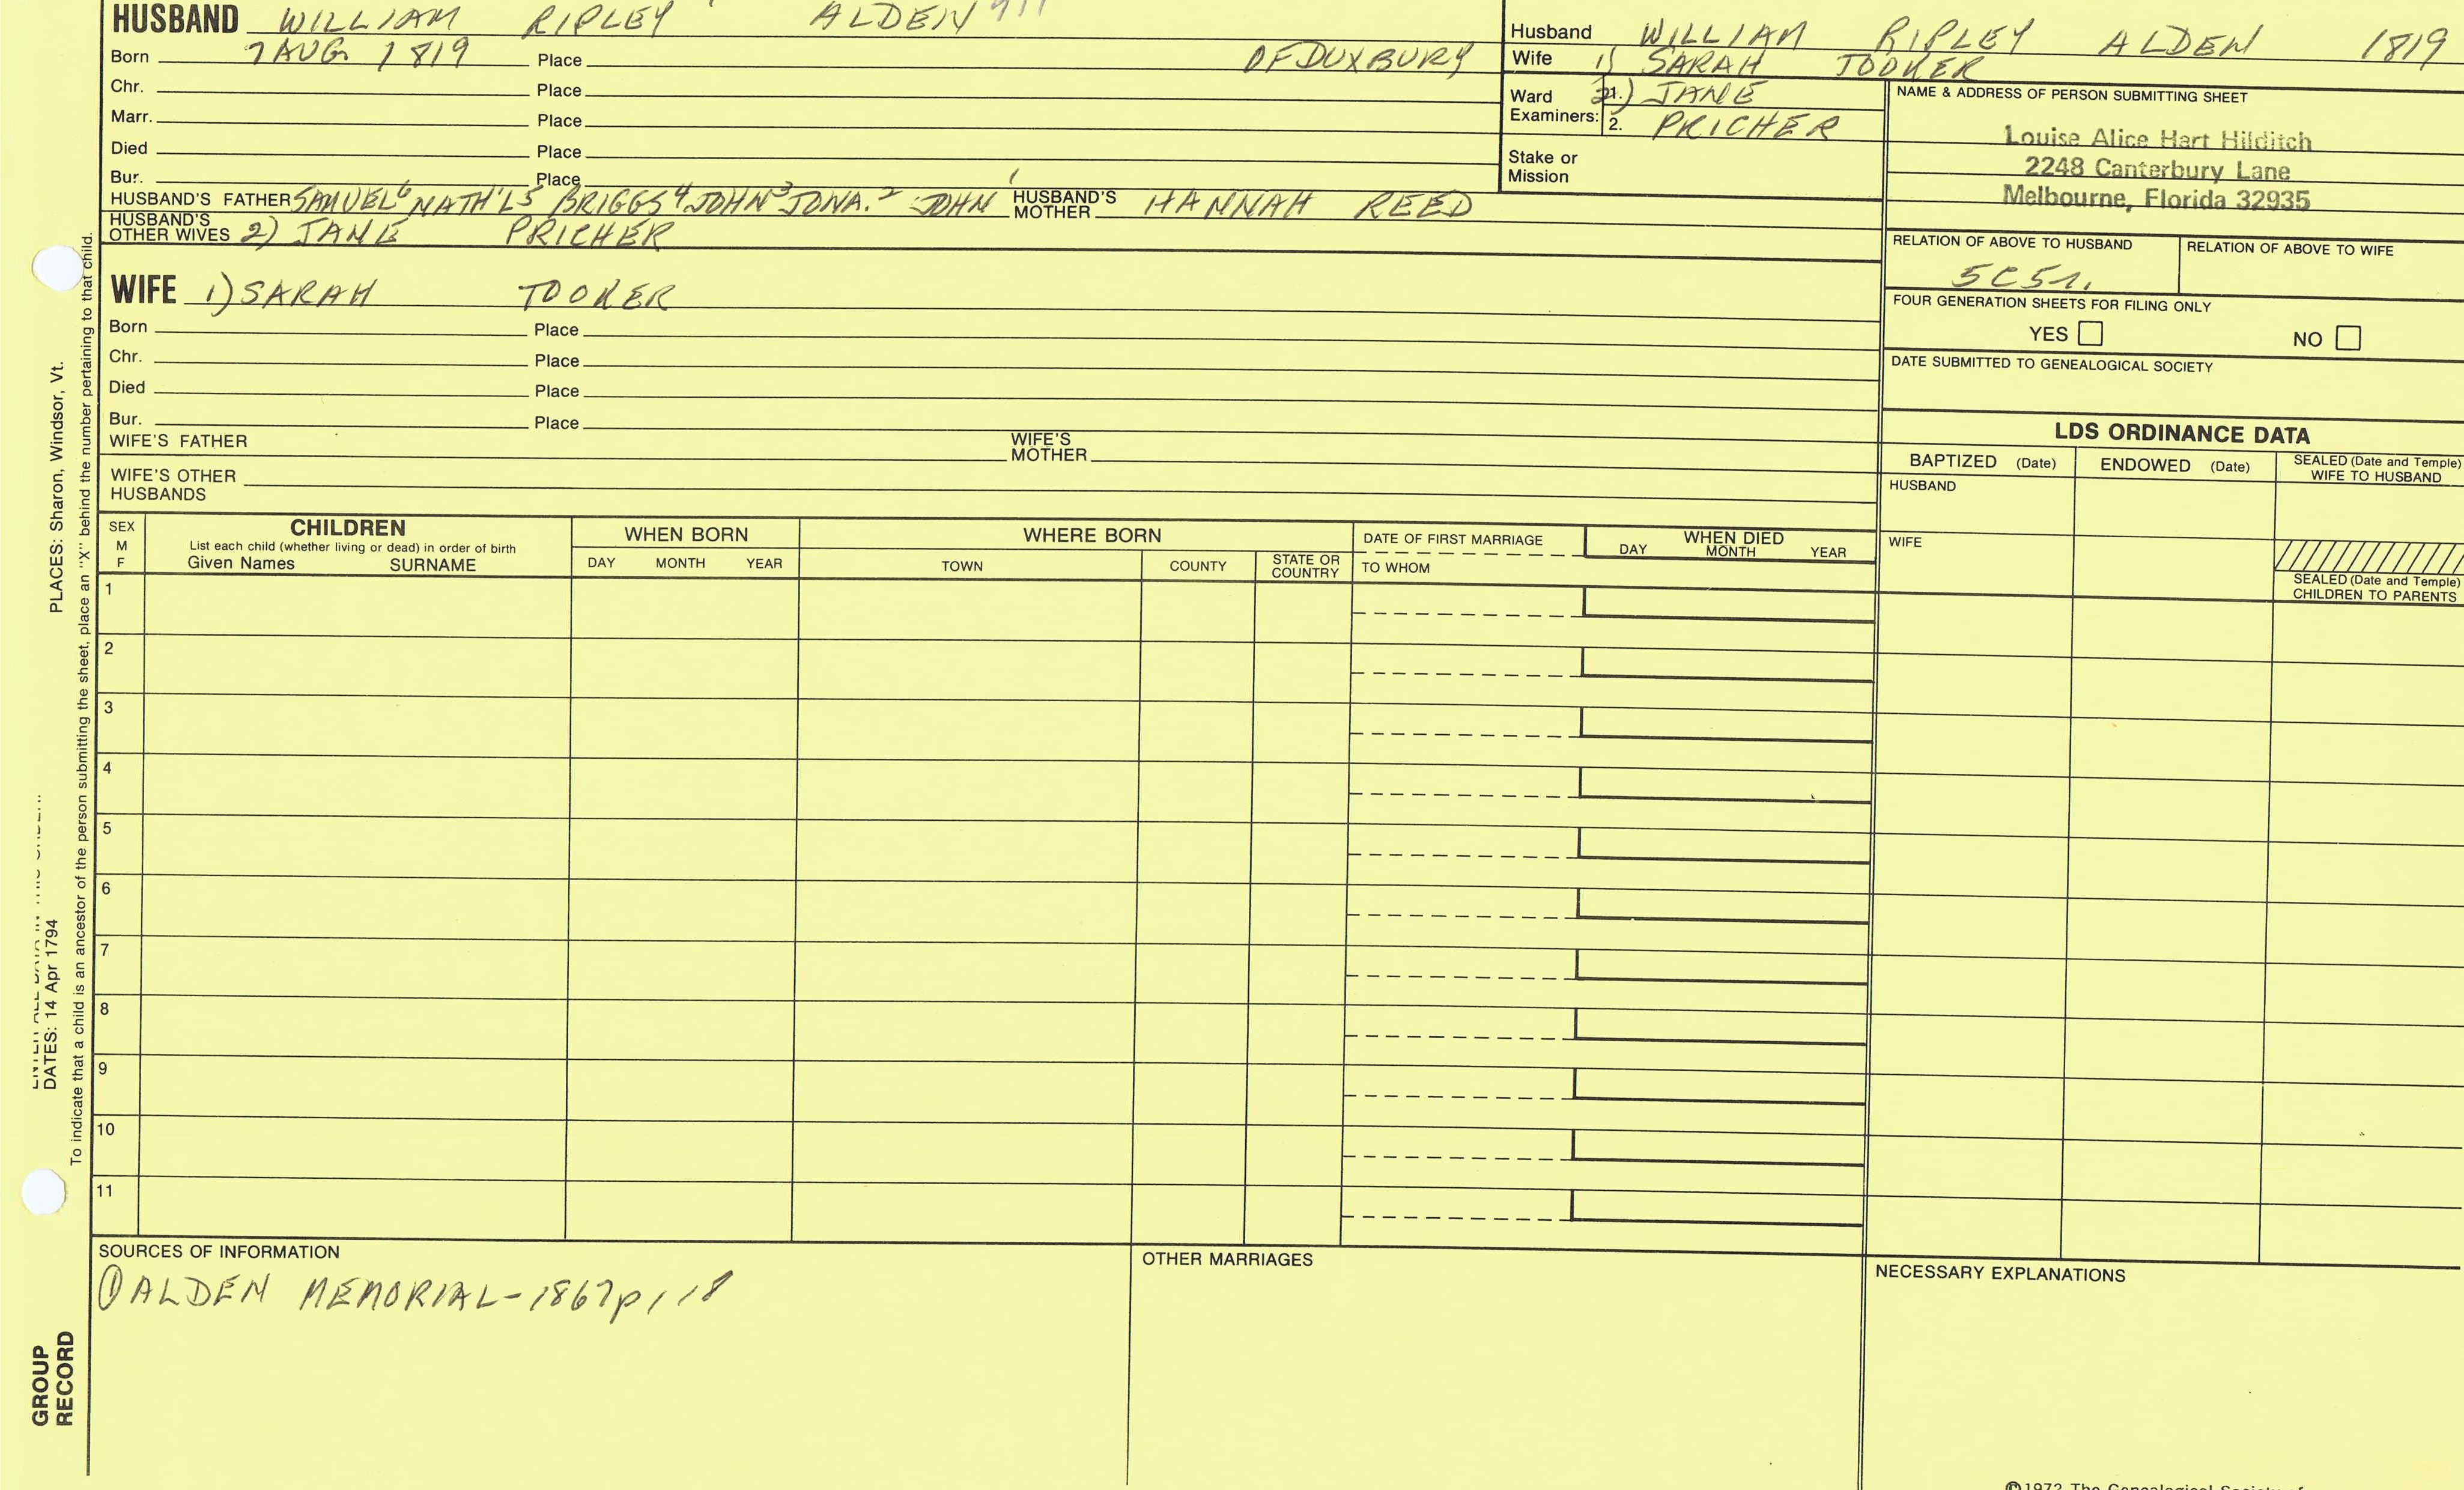 HUSBAND WILLIAM RIPLEY ALDEN
Born 7 AUG 1819 Place OF DUXBURY
Chr. Place
Marr. Place
Died Place
Bur. Place
HUSBAND'S FATHER SAMUEL⁶ NATH'L⁵ BRIGGS⁴ JOHN³ JONA.² JOHN¹ HUSBAND'S MOTHER HANNAH REED
HUSBAND'S OTHER WIVES 2) JANE PRICHER
WIFE 1) SARAH TOOKER
Born Place
Chr. Place
Died Place
Bur. Place
WIFE'S FATHER WIFE'S MOTHER
WIFE'S OTHER HUSBANDS
Husband WILLIAM RIPLEY ALDEN 1819
Wife 1) SARAH TOOKER
Ward Examiners: 1. 2) JANE
2. PRICHER
Stake or Mission
NAME & ADDRESS OF PERSON SUBMITTING SHEET
Louise Alice Hart Hilditch
2248 Canterbury Lane
Melbourne, Florida 32935
RELATION OF ABOVE TO HUSBAND RELATION OF ABOVE TO WIFE
5C5r.
FOUR GENERATION SHEETS FOR FILING ONLY
YES NO
DATE SUBMITTED TO GENEALOGICAL SOCIETY
LDS ORDINANCE DATA
BAPTIZED (Date) ENDOWED (Date) SEALED (Date and Temple) WIFE TO HUSBAND
HUSBAND
WIFE
SEALED (Date and Temple)
CHILDREN TO PARENTS
SEX M F
CHILDREN
List each child (whether living or dead) in order of birth
Given Names SURNAME
WHEN BORN
DAY MONTH YEAR
WHERE BORN
TOWN COUNTY STATE OR COUNTRY
DATE OF FIRST MARRIAGE
TO WHOM
WHEN DIED
DAY MONTH YEAR
1
2
3
4
5
6
7
8
9
10
11
SOURCES OF INFORMATION
① ALDEN MEMORIAL-1867 p 118
OTHER MARRIAGES
NECESSARY EXPLANATIONS
©1972 The Genealogical Society of
PLACES: Sharon, Windsor, Vt.
DATES: 14 Apr 1794
To indicate that a child is an ancestor of the person submitting the sheet, place an "X" behind the number pertaining to that child.
GROUP
RECORD